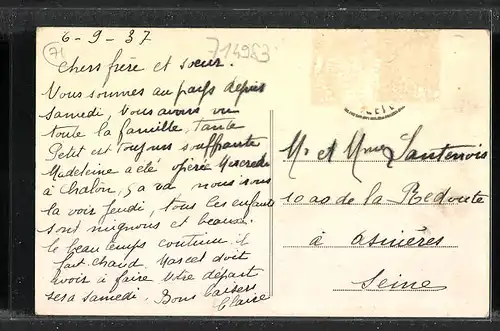 6-9-37
71
714983
Chers frère et soeur.
Vous sommes au pays depuis
samedi, vous avons vu
toute la famille, tante
Petit est toujours souffrante
Madeleine a été opérée Mercredi
à Chalon, ça va, nous irons
la voir Jeudi, tous les enfants
sont mignons et beaux.
le beau temps continu il
fait chaud Marcel doit
à faire Votre départ
sera samedi. Bons baisers
Claire
Mr et Mme Santenois
10 av de la Redoute
à Asnières
Seine